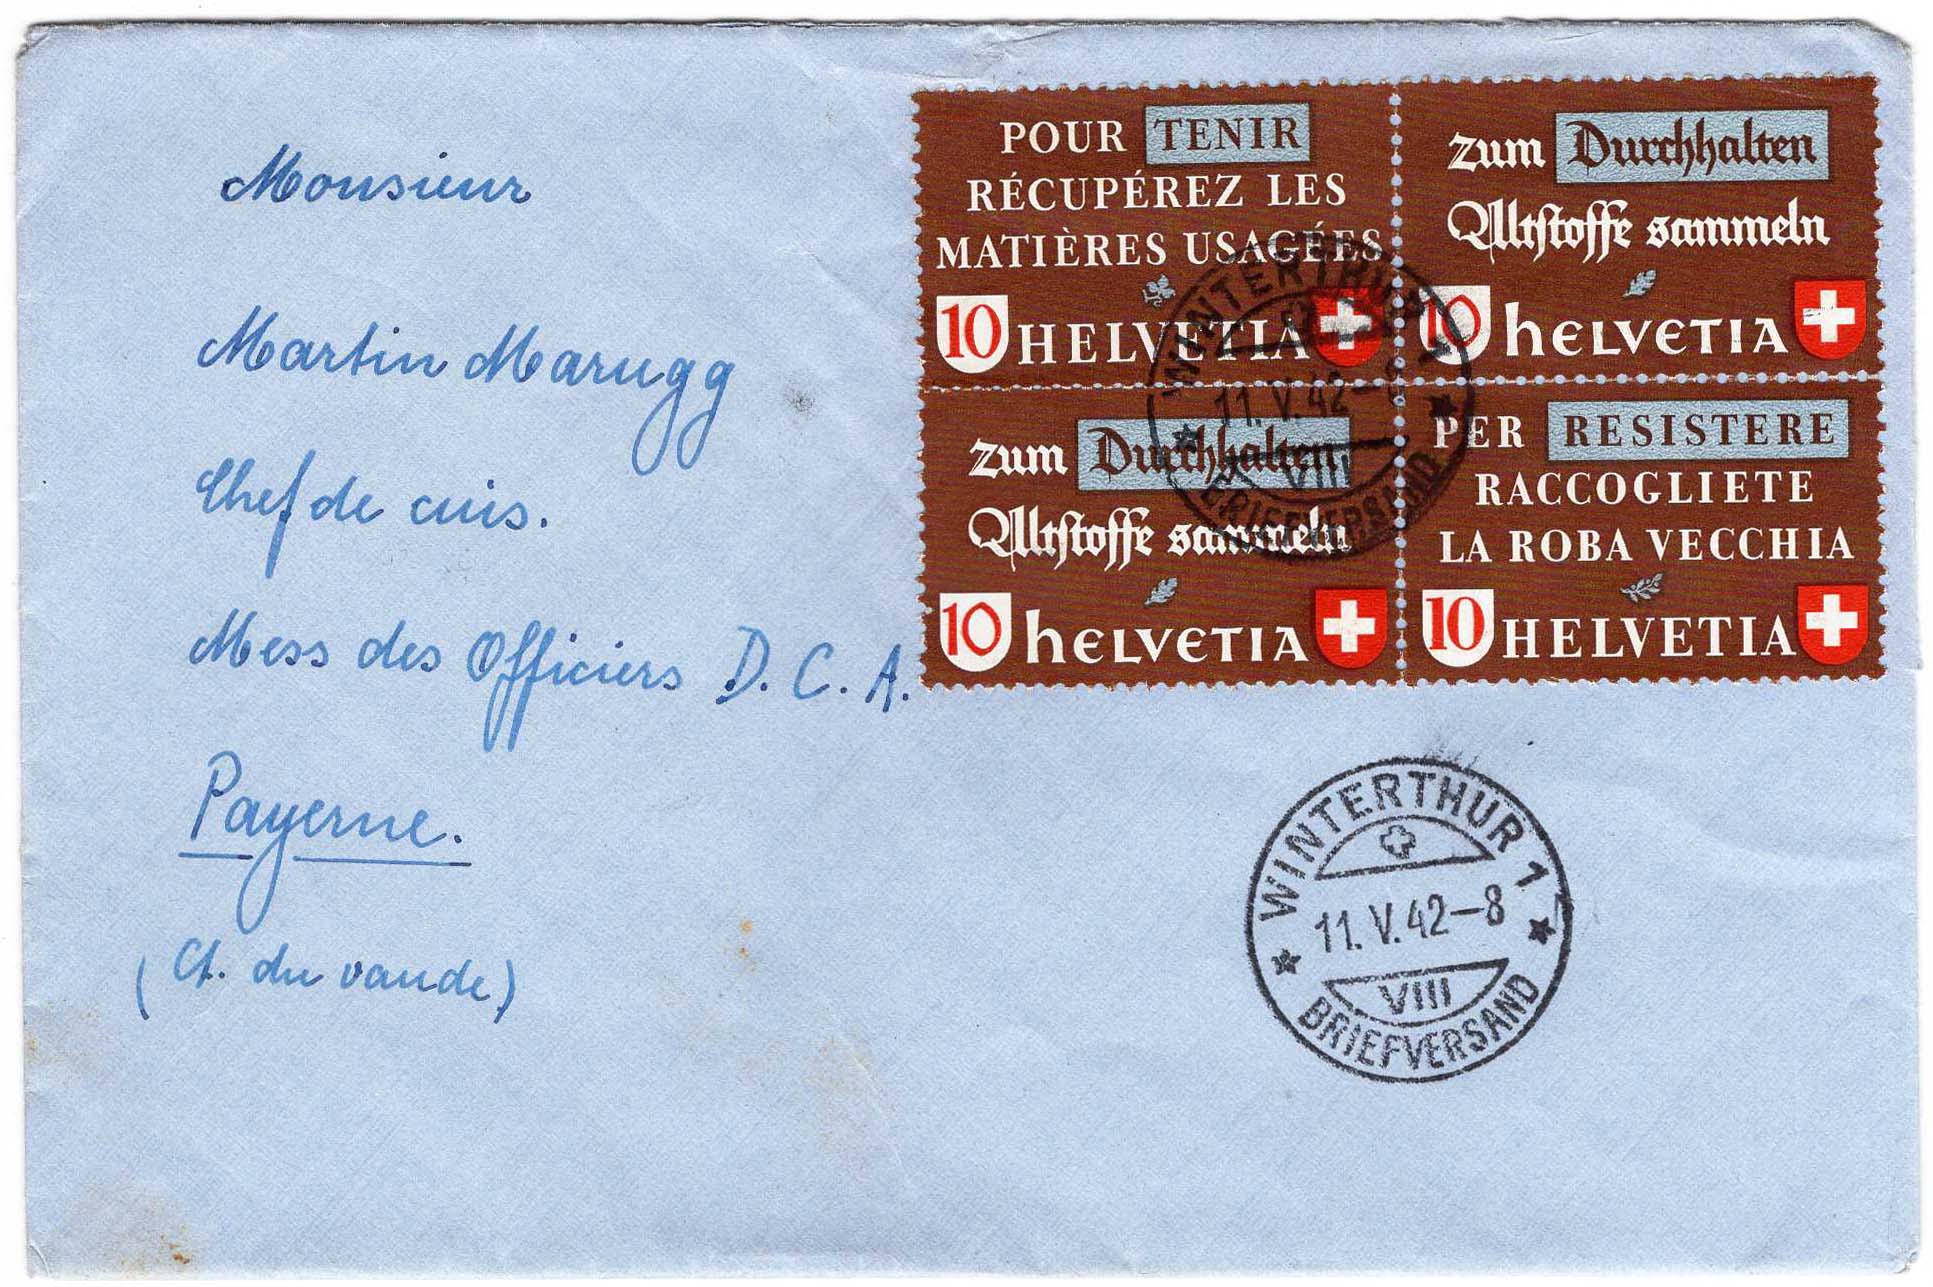 Monsieur
Martin Marugg
Chef de cuis.
Mess des Officiers D. C. A.
Payerne.
(Ct. du vaude)
POUR TENIR
RÉCUPÉREZ LES
MATIÈRES USAGÉES
10 HELVETIA
zum Durchhalten
Altstoffe sammeln
10 HELVETIA
zum Durchhalten
Altstoffe sammeln
10 HELVETIA
PER RESISTERE
RACCOGLIETE
LA ROBA VECCHIA
10 HELVETIA
WINTERTHUR 1
11. V. 42–8
VIII
BRIEFVERSAND
WINTERTHUR 1
11. V. 42–8
VIII
BRIEFVERSAND